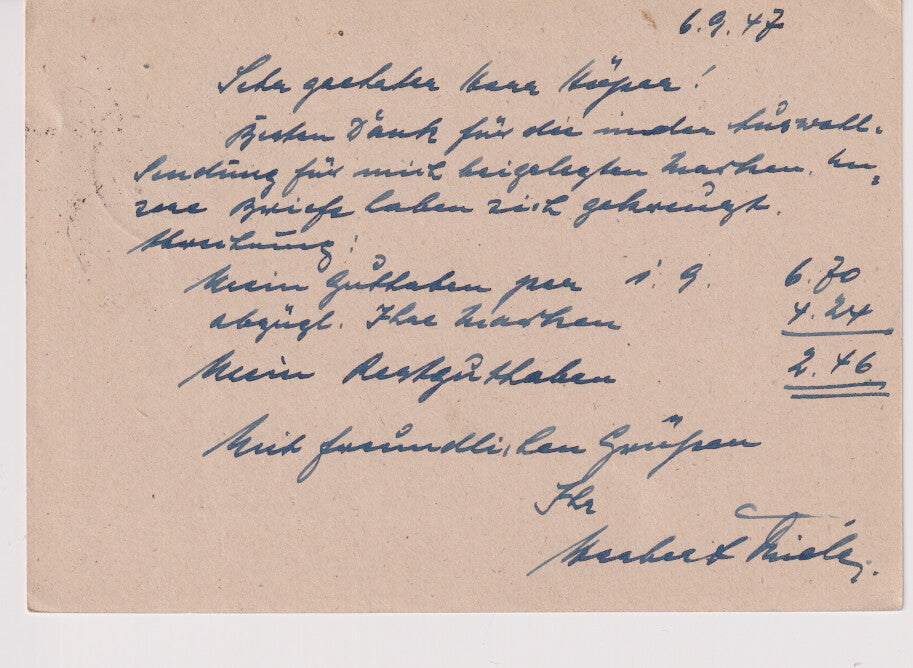 6.9.47
Sehr geehrter Herr Höper!
Besten Dank für die in der Auswahl-
Sendung für mich beigelegten Marken. Un-
sere Briefe haben sich gekreuzt.
Abrechnung:
Mein Guthaben per 1.9. 6.70
abzügl. Ihre Marken 4.24
Mein Restguthaben 2.46
Mit freundlichen Grüßen
Ihr
Herbert Thiele.